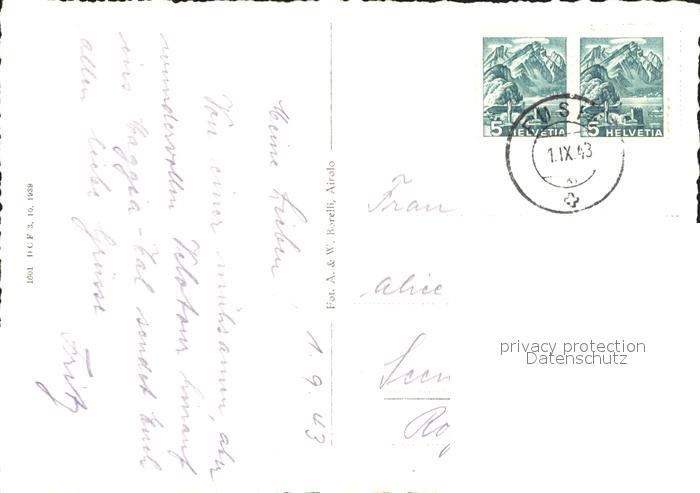 Meine Lieben! 1.9.43
Von einer mühsamen, aber
wundervollen Velotour hinauf
ins Maggia-Tal sendet Euch
allen liebe Grüsse
Fritz
1601 DGF 3. 10. 1939
Fot. A. & W. Borelli, Airolo
5 HELVETIA
5 HELVETIA
1.IX.43
Frau
Alice
privacy protection
Datenschutz